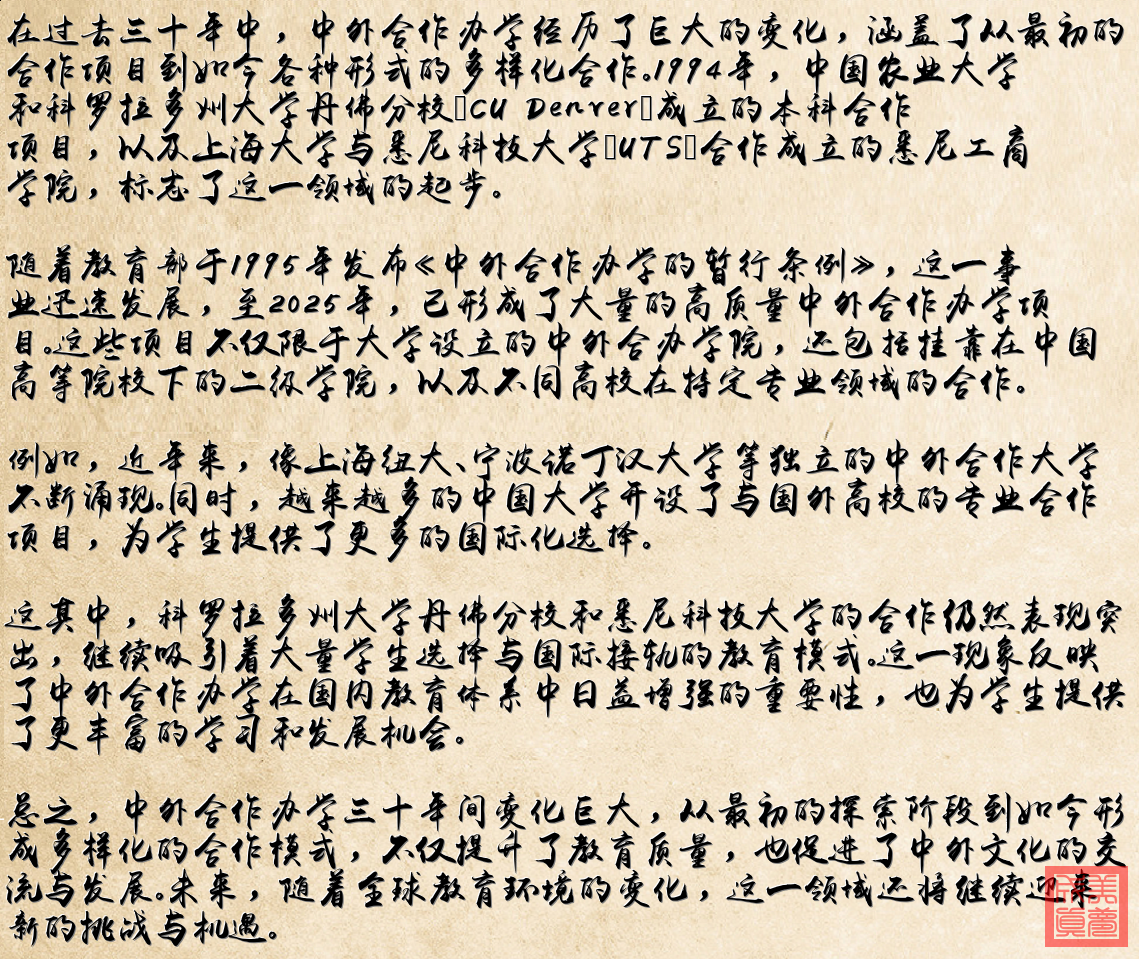 在过去三十年中，中外合作办学经历了巨大的变化，涵盖了从最初的
合作项目到如今各种形式的多样化合作。1994年，中国农业大学
和科罗拉多州大学丹佛分校▯CU Denver▯成立的本科合作
项目，以及上海大学与悉尼科技大学▯UTS▯合作成立的悉尼工商
学院，标志了这一领域的起步。
随着教育部于1995年发布《中外合作办学的暂行条例》，这一事
业迅速发展，至2025年，已形成了大量的高质量中外合作办学项
目。这些项目不仅限于大学设立的中外合办学院，还包括挂靠在中国
高等院校下的二级学院，以及不同高校在特定专业领域的合作。
例如，近年来，像上海纽大、宁波诺丁汉大学等独立的中外合作大学
不断涌现。同时，越来越多的中国大学开设了与国外高校的专业合作
项目，为学生提供了更多的国际化选择。
这其中，科罗拉多州大学丹佛分校和悉尼科技大学的合作仍然表现突
出，继续吸引着大量学生选择与国际接轨的教育模式。这一现象反映
了中外合作办学在国内教育体系中日益增强的重要性，也为学生提供
了更丰富的学习和发展机会。
总之，中外合作办学三十年间变化巨大，从最初的探索阶段到如今形
成多样化的合作模式，不仅提升了教育质量，也促进了中外文化的交
流与发展。未来，随着全球教育环境的变化，这一领域还将继续迎来
新的挑战与机遇。